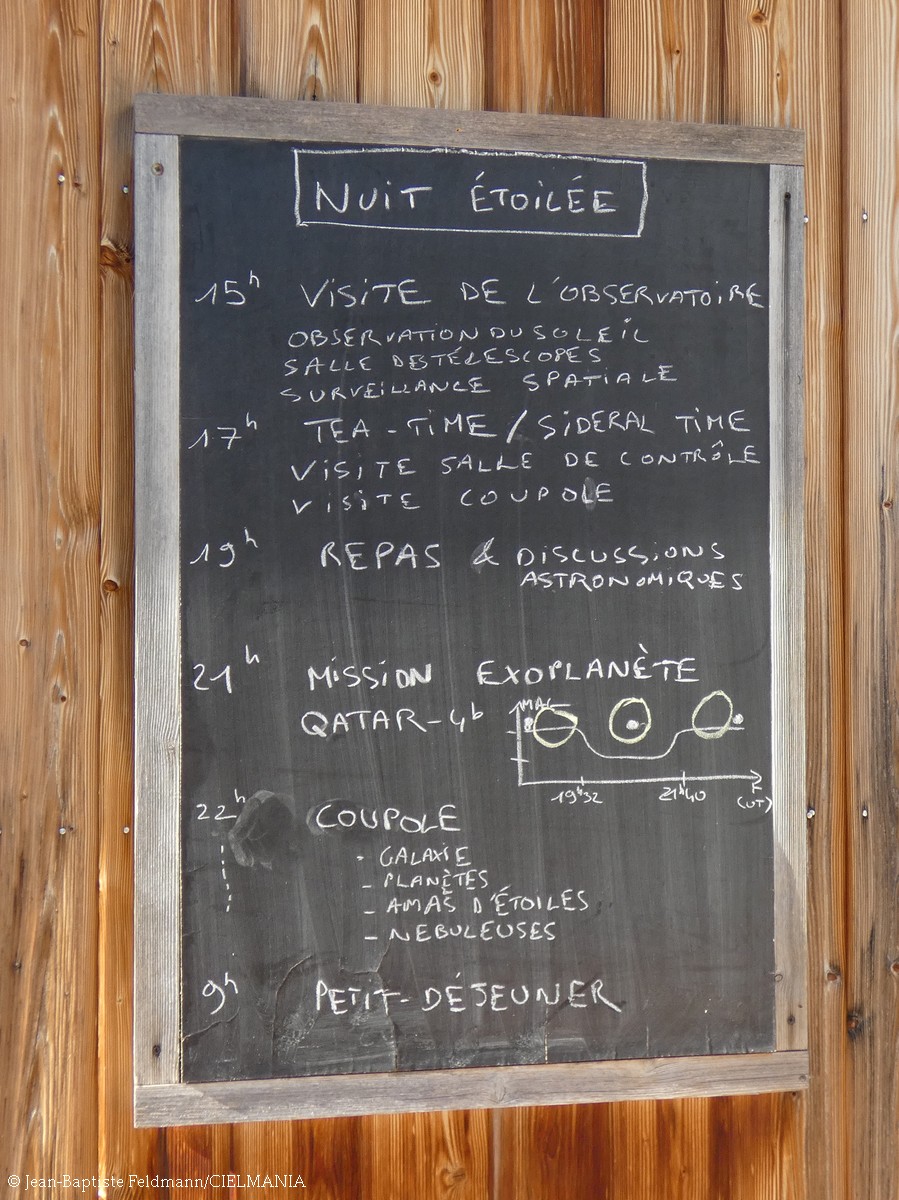 NUIT ÉTOILÉE
15h VISITE DE L'OBSERVATOIRE
OBSERVATION DU SOLEIL
SALLE DES TÉLESCOPES
SURVEILLANCE SPATIALE
17h TEA-TIME / SIDERAL TIME
VISITE SALLE DE CONTRÔLE
VISITE COUPOLE
19h REPAS & DISCUSSIONS
ASTRONOMIQUES
21h MISSION EXOPLANÈTE
QATAR-4b
MAG
19h32 21h40 t
(UT)
22h COUPOLE
- GALAXIE
- PLANÈTES
- AMAS D'ÉTOILES
- NEBULEUSES
9h PETIT-DÉJEUNER
© Jean-Baptiste Feldmann/CIELMANIA